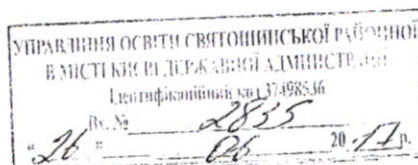 УПРАВЛІННЯ ОСВІТИ СВЯТОШИНСЬКОЇ РАЙОННОЇ
В МІСТІ КИЄВІ ДЕРЖАВНОЇ АДМІНІСТРАЦІЇ
Ідентифікаційний код 37498536
Вх. № 2835
" 26 " 06 20 17 р.